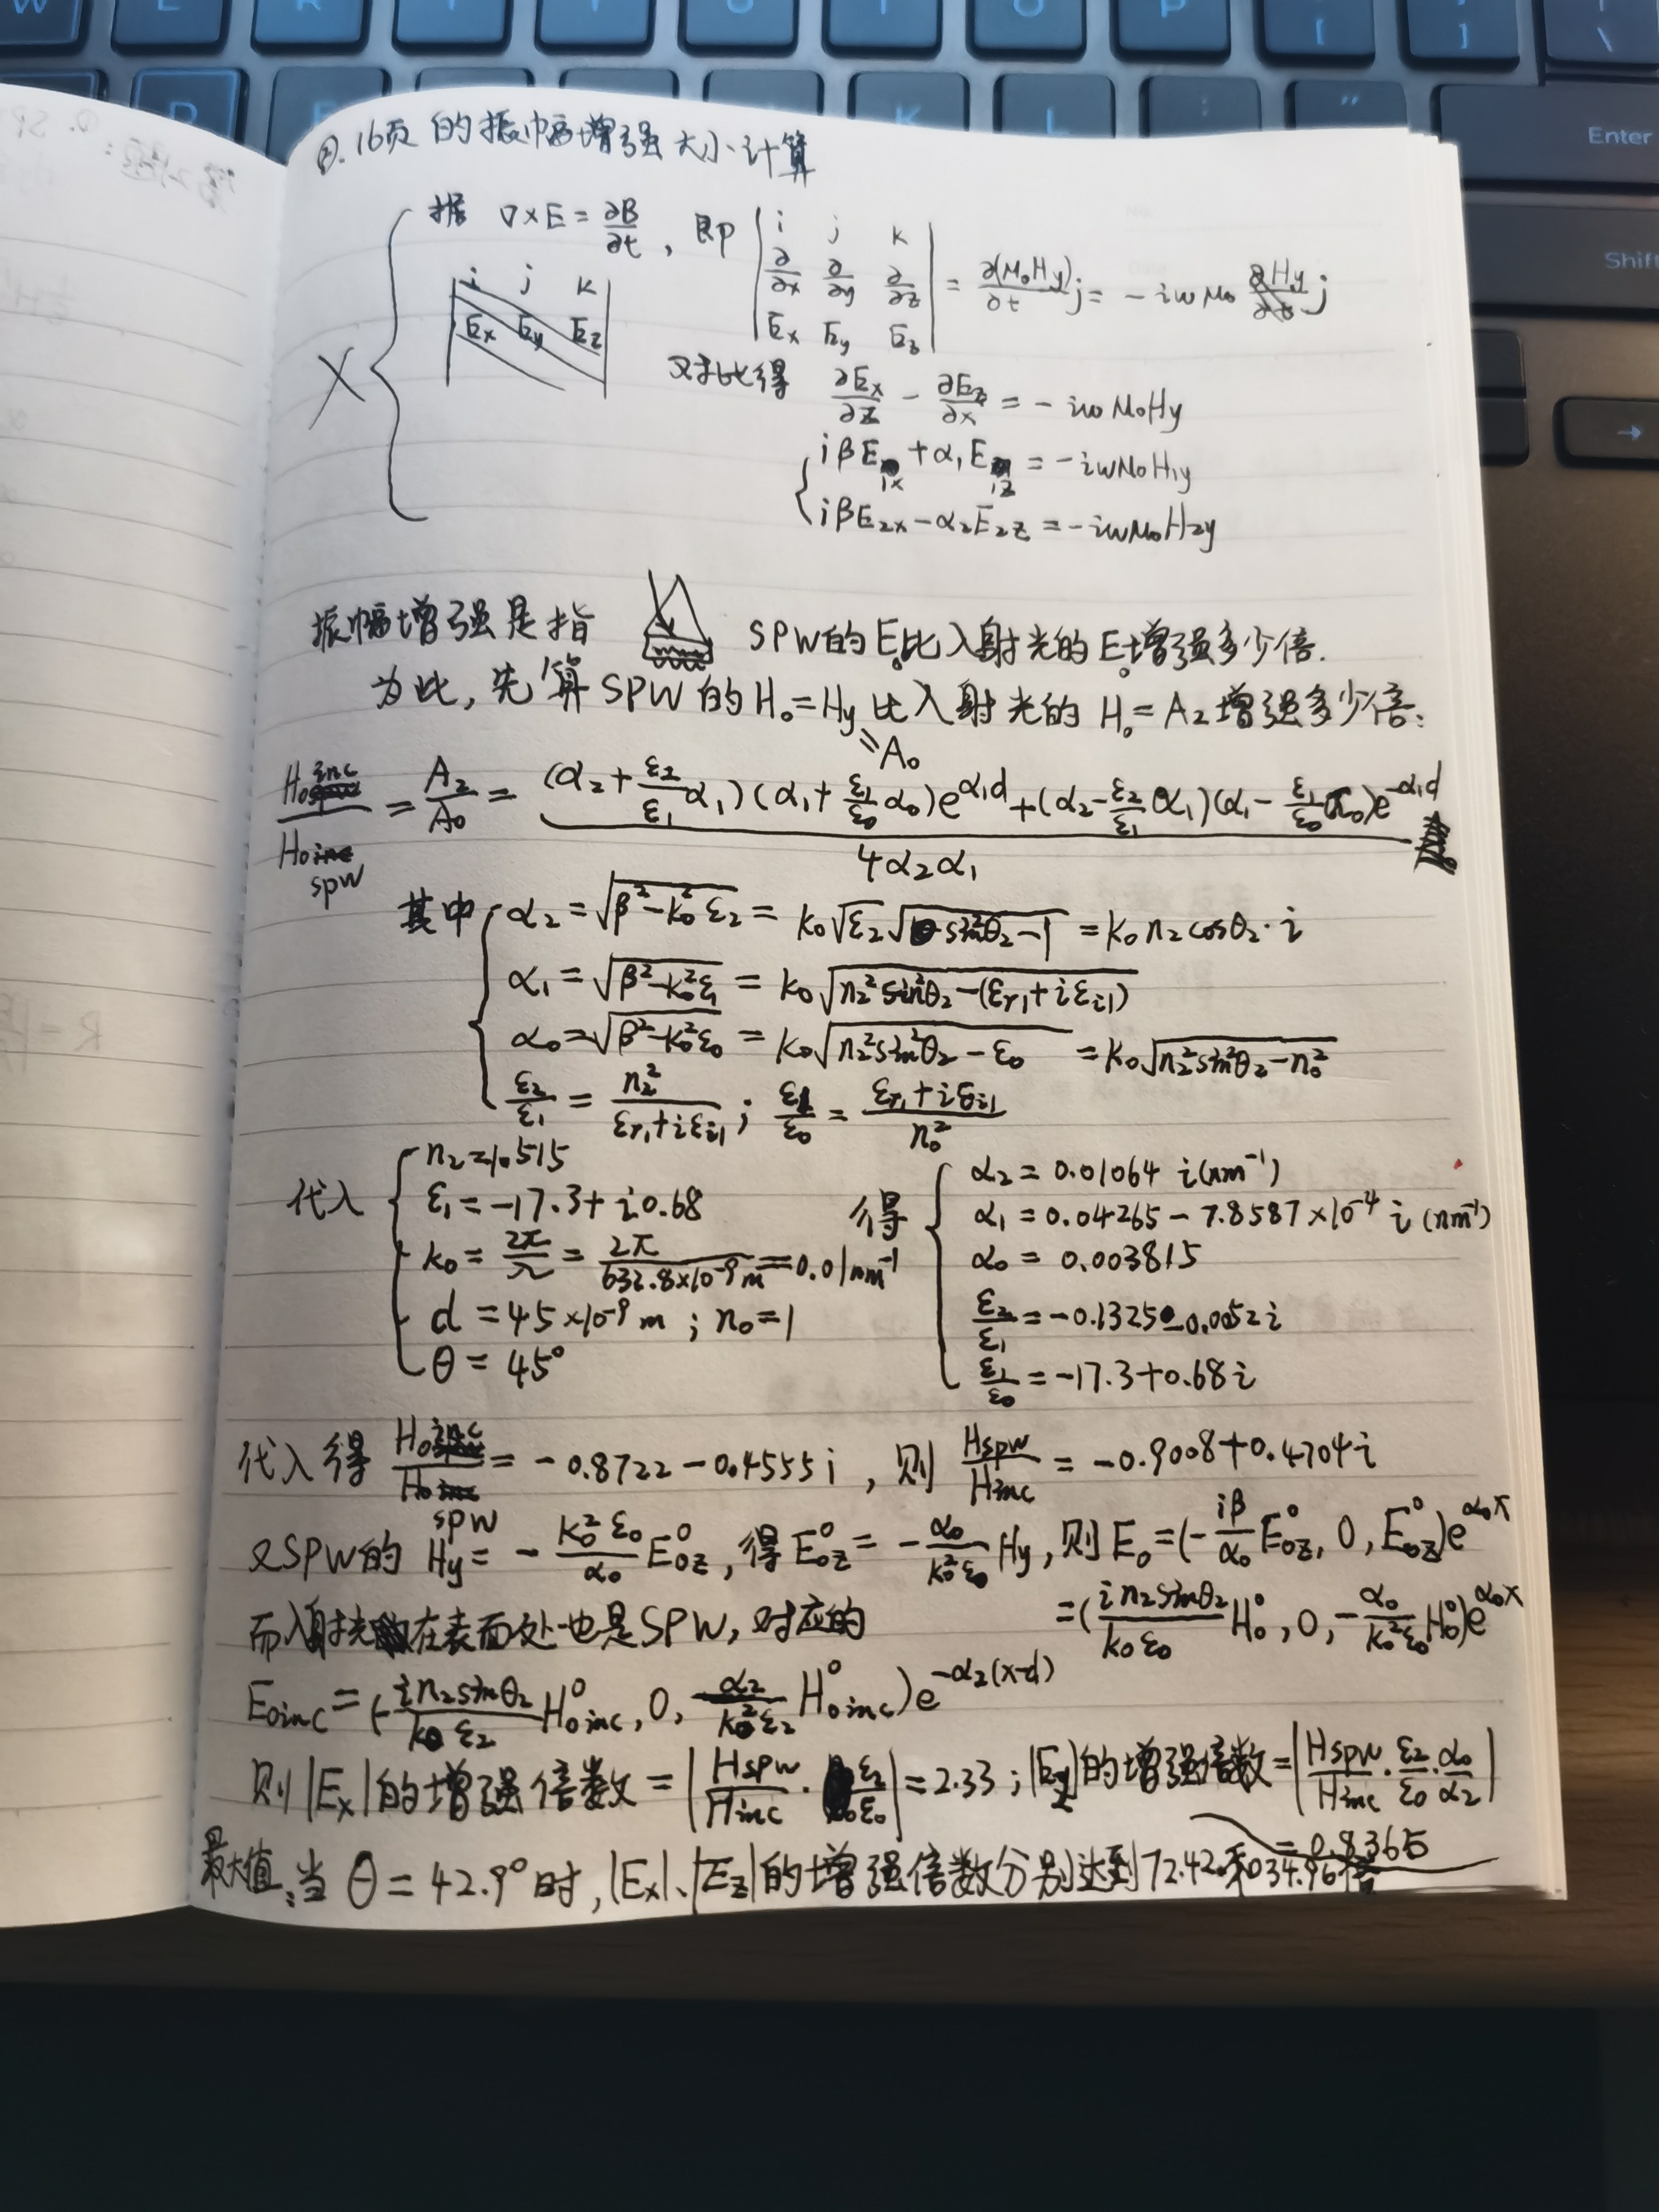 W E R T Y U I O P { [ } ] | \
K L " ' Enter
Shift
→
②. 16页的振幅增强大小计算
据 ∇×E = ∂B/∂t , 即 | i j k ; ∂/∂x ∂/∂y ∂/∂z ; Ex Ey Ez | = ∂(μ0Hy)/∂t j = -iωμ0 ∂Hy/∂t j
| i j k ; Ex Ey Ez |
× 对比得 ∂Ex/∂z - ∂Ez/∂x = -iωμ0Hy
iβE1x + α1E1z = -iωμ0H1y
iβE2x - α2E2z = -iωμ0H2y
振幅增强是指 SPW的E0比入射光的E0增强多少倍.
为此, 先算SPW的H0=Hy比入射光的H0=A2增强多少倍:
=A0
H0inc/H0spw = A2/A0 = [(α2 + ε2/ε1 α1)(α1 + ε1/ε0 α0)e^(α1d) + (α2 - ε2/ε1 α1)(α1 - ε1/ε0 α0)e^(-α1d)] / 4α2α1
其中 α2 = √(β²-k0²ε2) = k0√ε2 √(sin²θ2-1) = k0n2cosθ2·i
α1 = √(β²-k0²ε1) = k0√(n2²sin²θ2-(εr1+iεi1))
α0 = √(β²-k0²ε0) = k0√(n2²sin²θ2-ε0) = k0√(n2²sin²θ2-n0²)
ε2/ε1 = n2²/(εr1+iεi1) ; ε1/ε0 = (εr1+iεi1)/n0²
代入 n2=1.515
ε1=-17.3+i0.68
k0 = 2π/λ = 2π/(632.8×10⁻⁹m) = 0.01nm⁻¹
d = 45×10⁻⁹m ; n0=1
θ = 45°
得 α2 = 0.01064 i (nm⁻¹)
α1 = 0.04265 - 7.8587×10⁻⁴ i (nm⁻¹)
α0 = 0.003815
ε2/ε1 = -0.1325-0.0052i
ε1/ε0 = -17.3+0.68i
代入得 H0inc/H0spw = -0.8722-0.4555i , 则 Hspw/Hinc = -0.9008+0.4704i
又SPW的 Hy = -k0²ε0/α0 E0z⁰, 得E0z⁰ = -α0/k0²ε0 Hy, 则E0=(-iβ/α0 E0z⁰, 0, E0z⁰)e^(α0x)
而入射光在表面处也是SPW, 对应的 =(i n2sinθ2/k0ε0 H0⁰, 0, -α0/k0²ε0 H0⁰)e^(α0x)
E0inc = (-i n2sinθ2/k0ε2 H0inc⁰, 0, α2/k0²ε2 H0inc⁰)e^(-α2(x-d))
则|Ex|的增强倍数 = |Hspw/Hinc · ε2/ε0| = 2.33 ; |Ez|的增强倍数 = |Hspw/Hinc · ε2/ε0 · α0/α2|
= 0.8365
最大值: 当 θ = 42.9°时, |Ex|、|Ez|的增强倍数分别达到72.42和34.96倍